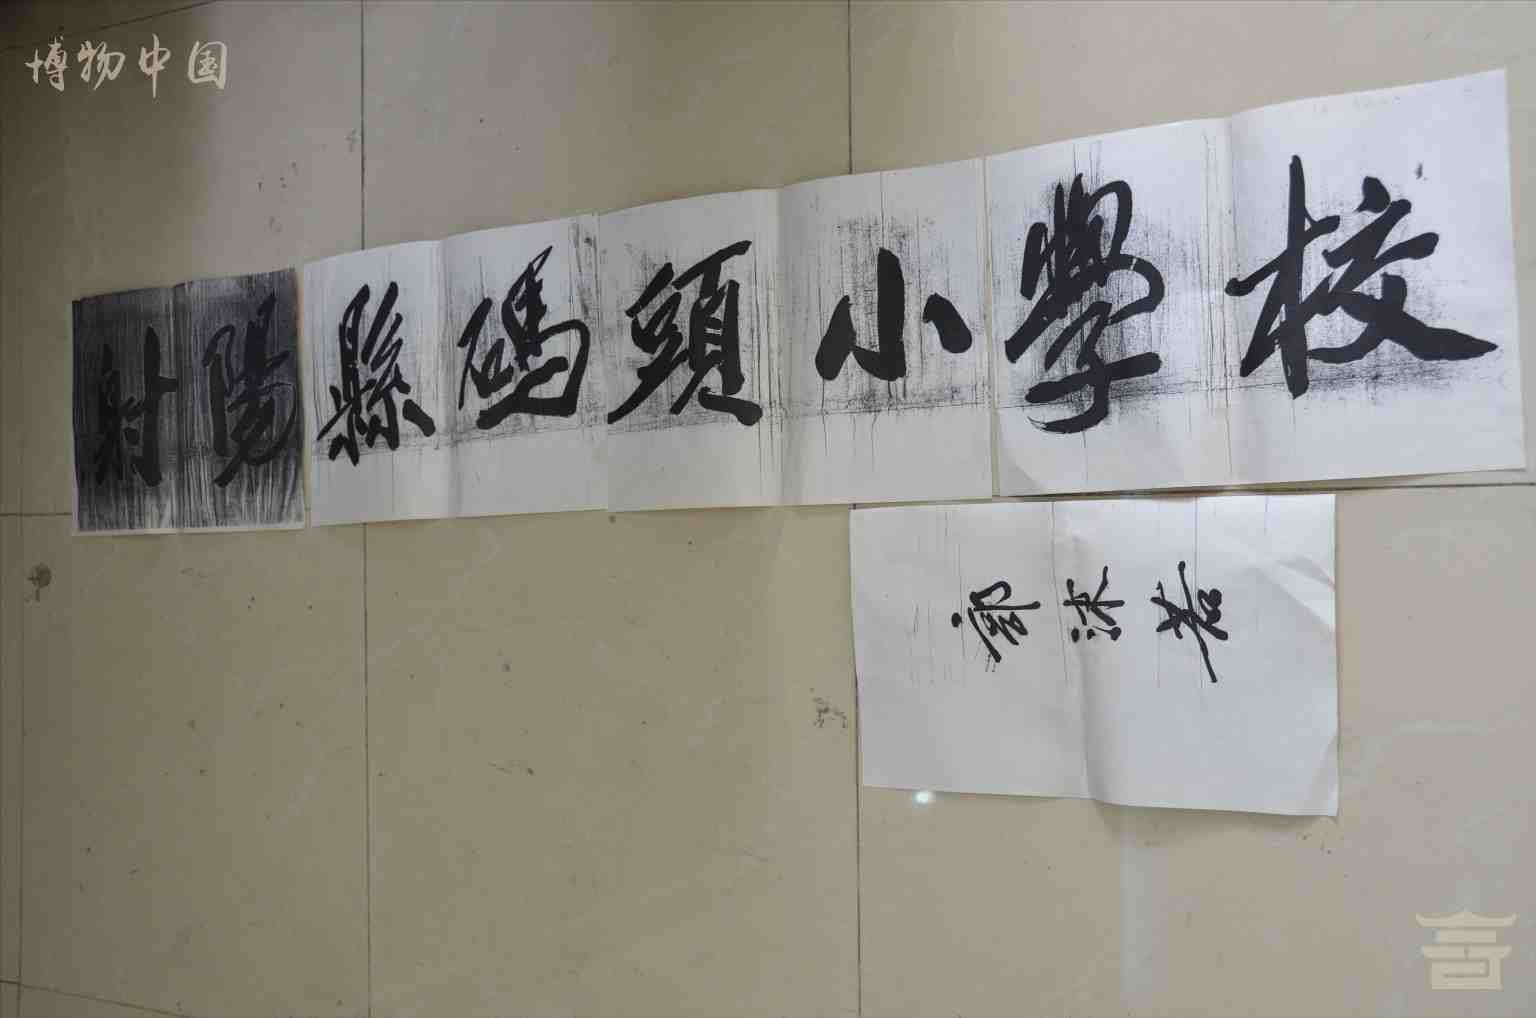 博物中国
射陽縣碼頭小學校
郭沫若